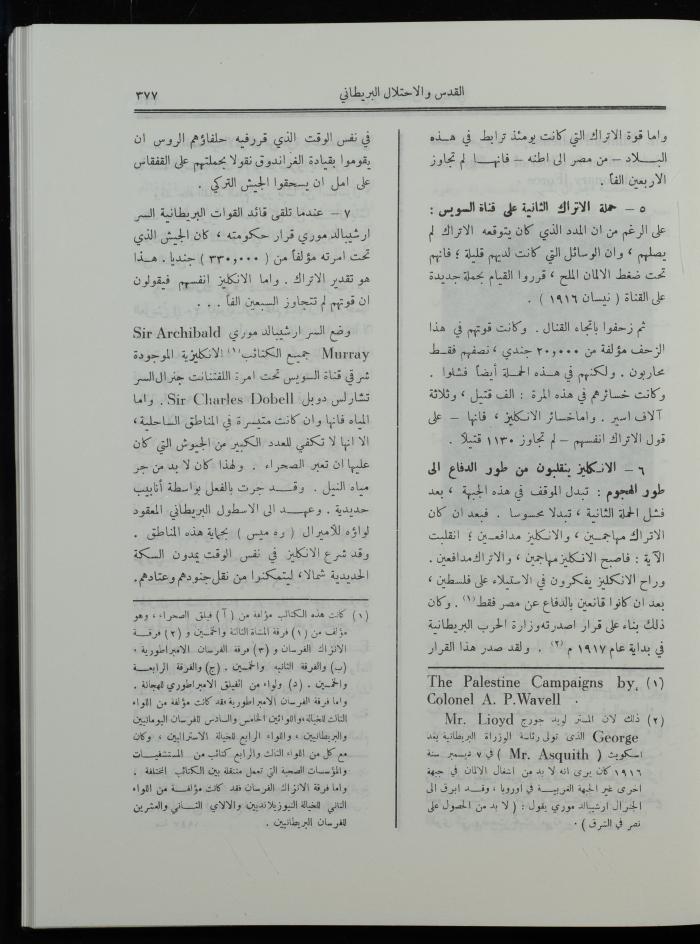 القدس والاحتلال البريطاني
٣٧٧
واما قوة الاتراك التي كانت يومئذ ترابط في هذه
البلاد – من مصر الى اطنه – فانها لم تجاوز
الاربعين الفاً .
٥ – حملة الاتراك الثانية على قناة السويس :
على الرغم من ان المدد الذي كان يتوقعه الاتراك لم
يصلهم ، وان الوسائل التي كانت لديهم قليلة ؛ فانهم
تحت ضغط الالمان الملح ، قرروا القيام بحملة جديدة
على القناة ( نيسان ١٩١٦ ) .
ثم زحفوا باتجاه القنال . وكانت قوتهم في هذا
الزحف مؤلفة من ٢٠,٠٠٠ جندي ، نصفهم فقط
محاربون . ولكنهم في هذه الحملة أيضاً فشلوا .
وكانت خسائرهم في هذه المرة : الف قتيل ، وثلاثة
آلاف اسير . واما خسائر الانكليز ، فانها – على
قول الاتراك انفسهم – لم تجاوز ١١٣٠ قتيلاً .
٦ – الانكليز ينقلبون من طور الدفاع الى
طور الهجوم : تبدل الموقف في هذه الجبهة ، بعد
فشل الحملة الثانية ، تبدلا محسوسا . فبعد ان كان
الاتراك مهاجمين ، والانكليز مدافعين ؛ انقلبت
الآية : فاصبح الانكليز مهاجمين ، والاتراك مدافعين .
وراح الانكليز يفكرون في الاستيلاء على فلسطين ،
بعد ان كانوا قانعين بالدفاع عن مصر فقط (١) . وكان
ذلك بناء على قرار اصدرته وزارة الحرب البريطانية
في بداية عام ١٩١٧ م (٢) . ولقد صدر هذا القرار
(١) The Palestine Campaigns by,
Colonel A. P.Wavell .
(٢) ذلك لان المستر لويد جورج Mr. Lioyd
George الذي تولى رئاسة الوزارة البريطانية بعد
اسكويث ( Mr. Asquith ) في ٧ ديسمبر سنة
١٩١٦ كان يرى انه لا بد من اشغال الالمان في جبهة
اخرى غير الجبهة الغربية في اوروبا ، وقد ابرق الى
الجنرال ارشيبالد موري يقول : ( لا بد من الحصول على
نصر في الشرق ) .
في نفس الوقت الذي قرر فيه حلفاؤهم الروس ان
يقوموا بقيادة الغراندوق نقولا بحملتهم على القفقاس
على امل ان يسحقوا الجيش التركي .
٧ – عندما تلقى قائد القوات البريطانية السر
ارشيبالد موري قرار حكومته ، كان الجيش الذي
تحت امرته مؤلفاً من ( ٣٣٠,٠٠٠ ) جنديا . هذا
هو تقدير الاتراك . واما الانكليز انفسهم فيقولون
ان قوتهم لم تتجاوز السبعين الفاً . . .
وضع السر ارشيبالد موري Sir Archibald
Murray جميع الكتائب (١) الانكليزية الموجودة
شرقي قناة السويس تحت امرة اللفتنانت جنرال السر
تشارلس دوبل Sir Charles Dobell . واما
المياه فانها وان كانت متيسرة في المناطق الساحلية ،
الا انها لا تكفي للعدد الكبير من الجيوش التي كان
عليها ان تعبر الصحراء . ولهذا كان لا بد من جر
مياه النيل . وقد جرت بالفعل بواسطة أنابيب
حديدية . وعهد الى الاسطول البريطاني المعقود
لواؤه للأميرال ( ره ميس ) بحماية هذه المناطق .
وقد شرع الانكليز في نفس الوقت يمدون السكة
الحديدية شمالا، ليتمكنوا من نقل جنودهم وعتادهم.
(١) كانت هذه الكتائب مؤلفة من ( آ ) فيلق الصحراء ، وهو
مؤلف من (١) فرقة المشاة الثالثة والخمسين و (٢) فرقة
الانزاك الفرسان و (٣) فرقة الفرسان الامبراطورية .
(ب) والفرقة الثانيه والخمسين . (ج) والفرقة الرابعة
والخمسين . (د) ولواء من الفيلق الامبراطوري للهجانة .
واما فرقة الفرسان الامبراطورية فقد كانت مؤلفة من اللواء
الثالث للخيالة، واللوائين الخامس والسادس للفرسان اليومانيين
والبريطانيين ، واللواء الرابع للخيالة الاستراليين ، وكان
مع كل من اللواء الثالث والرابع كتائب من المستشفيات
والمؤسسات الصحية التي تعمل متنقلة بين الكتائب المختلفة .
واما فرقة الانزاك الفرسان فقد كانت مؤلفة من اللواء
الثاني للخيالة النيوزيلانديين والالاي الثاني والعشرين
للفرسان البريطانيين .